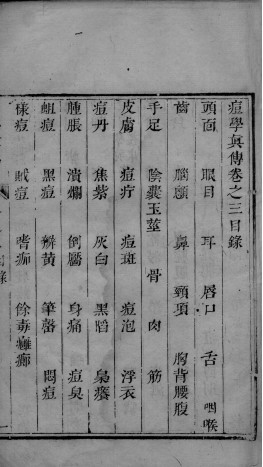 痘學眞傳卷之三目錄
頭面 眼目 耳 唇口 舌 咽喉
齒 腦顖 鼻 頸項 胸背腰腹
手足 陰囊玉莖 骨 肉 筋
皮膚 痘疔 痘斑 痘泡 浮衣
痘丹 焦紫 灰白 黑陷
腫脹 潰爛 倒靨 身痛 痘臭
蛆痘 黑痘 辨黃 悶痘
樣痘 賊痘 嗜痂 餘毒癰癤